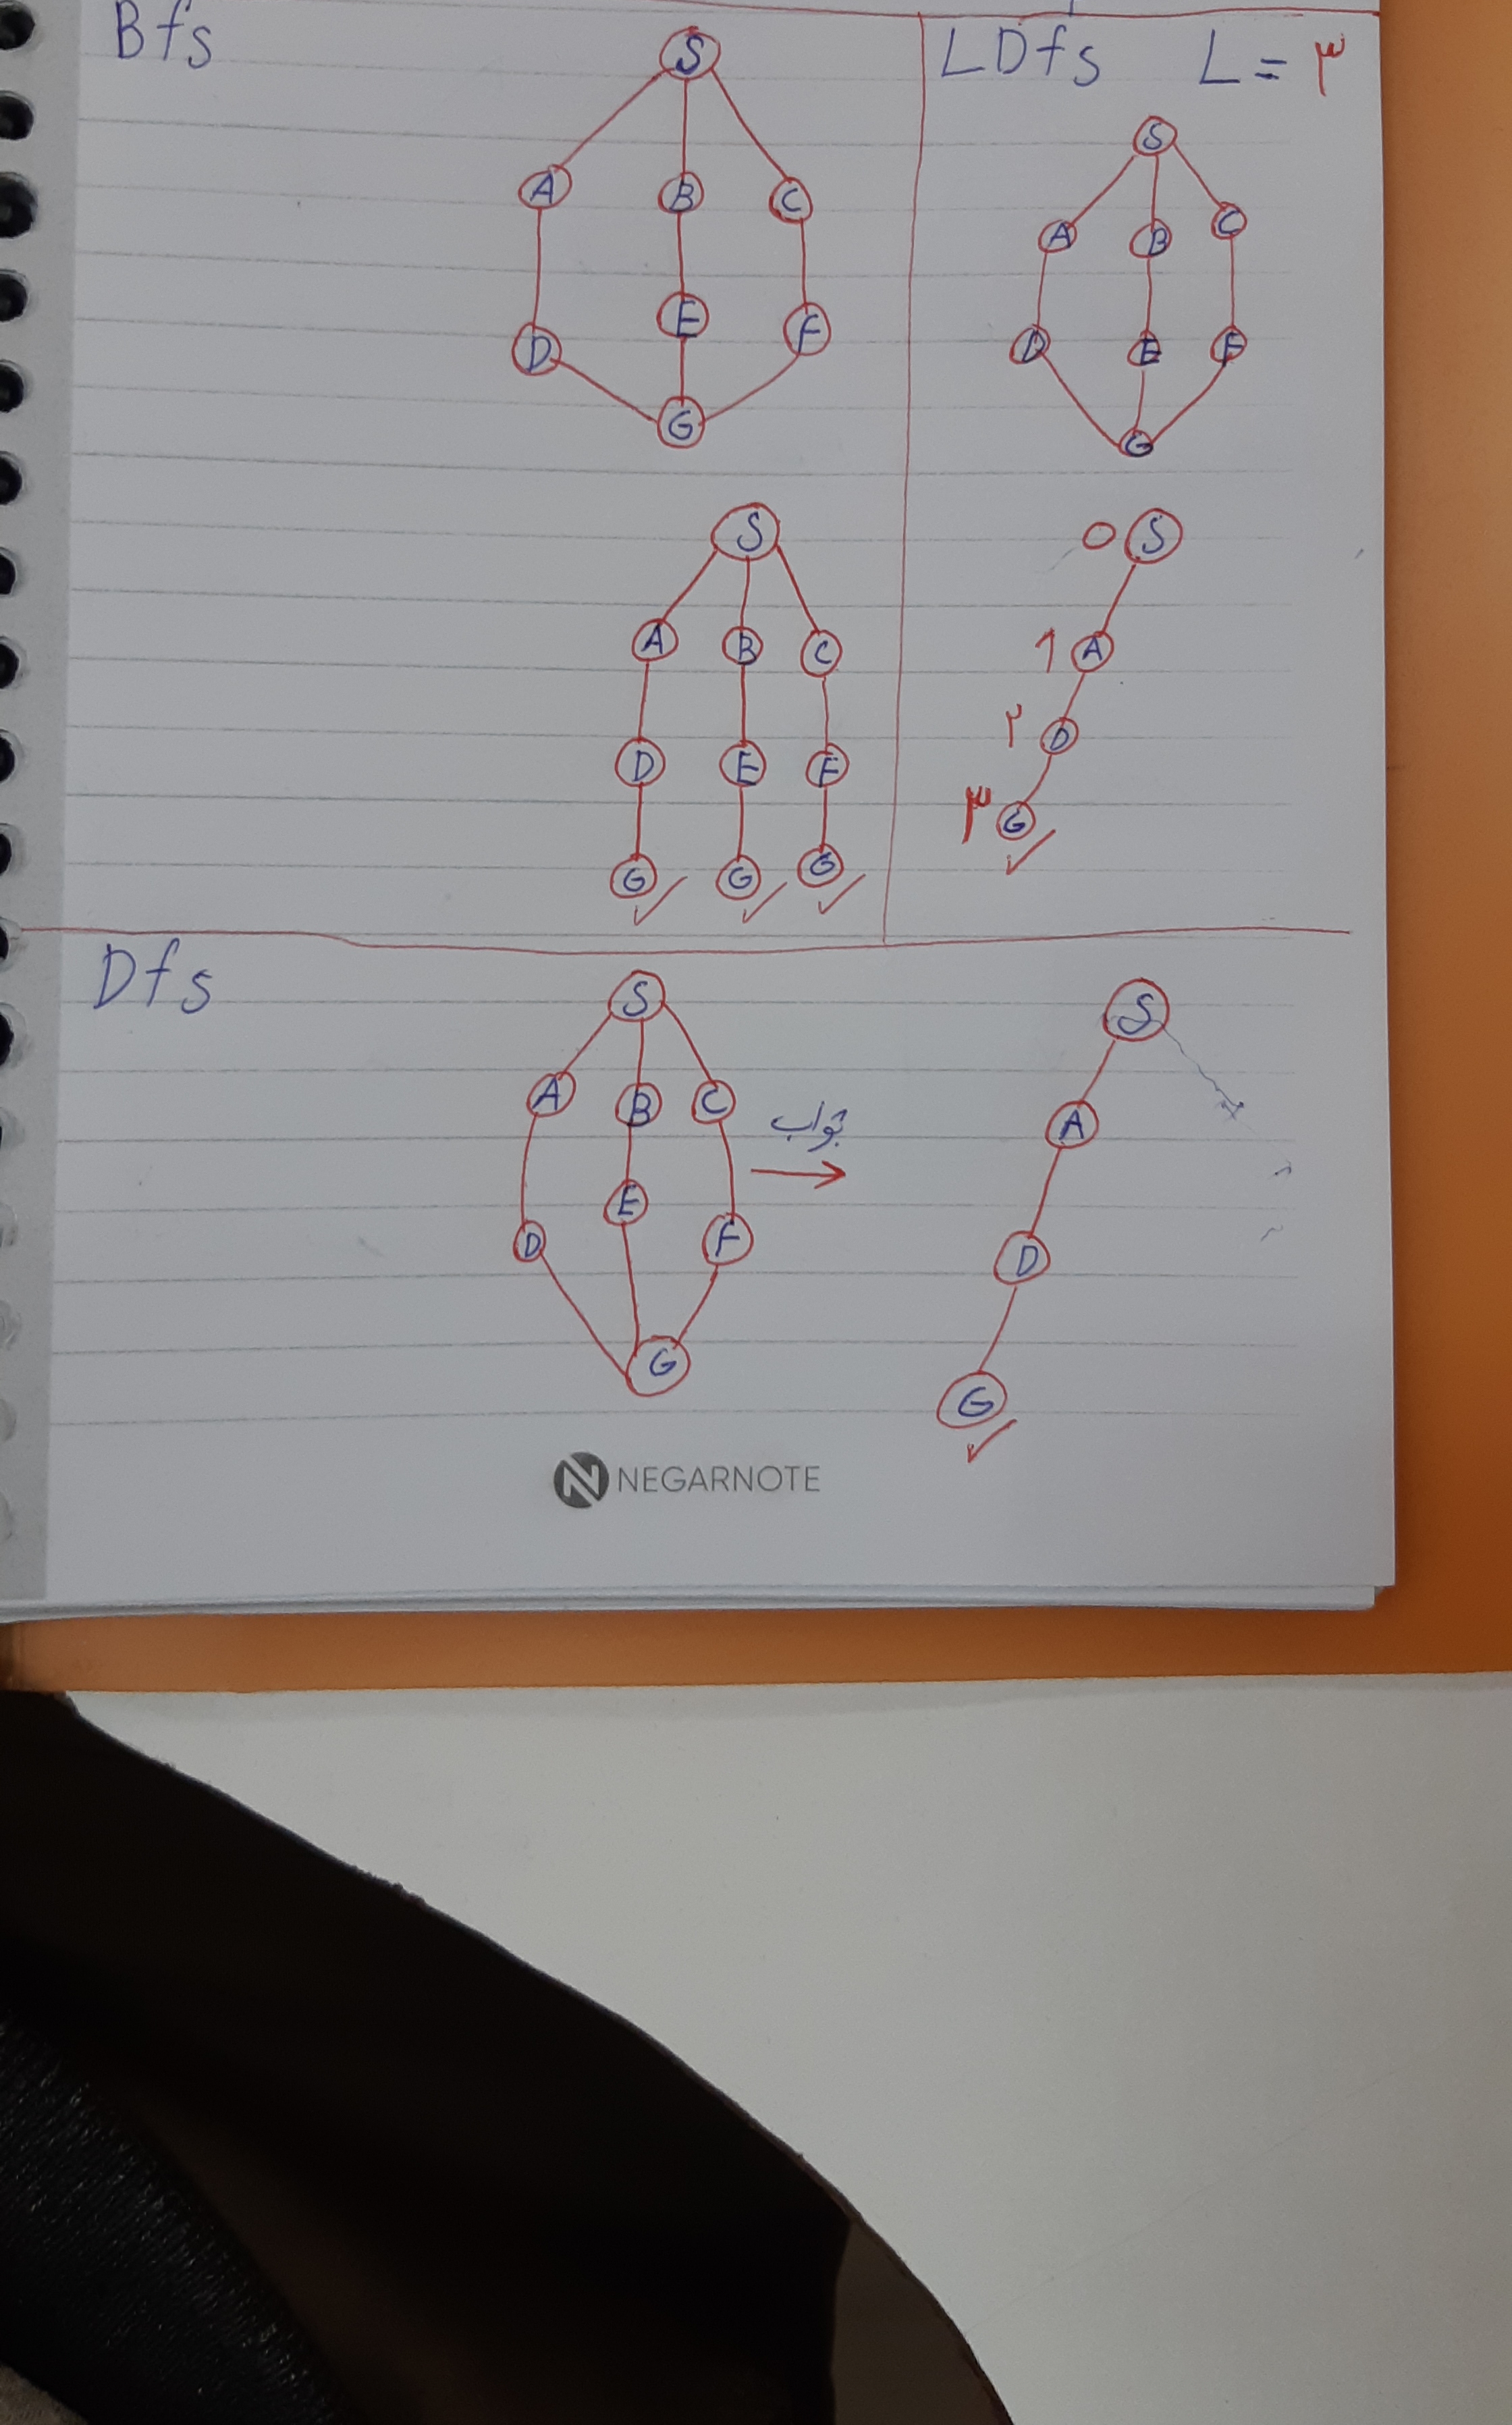 Bfs
S
A B C
E
D F
G
S
A B C
D E F
G G G
LDfs L = ۳
S
A B C
D E F
G
0 S
1 A
۲ D
۳ G
Dfs
S
A B C
E
D F
G
جواب
S
A
D
G
NEGARNOTE